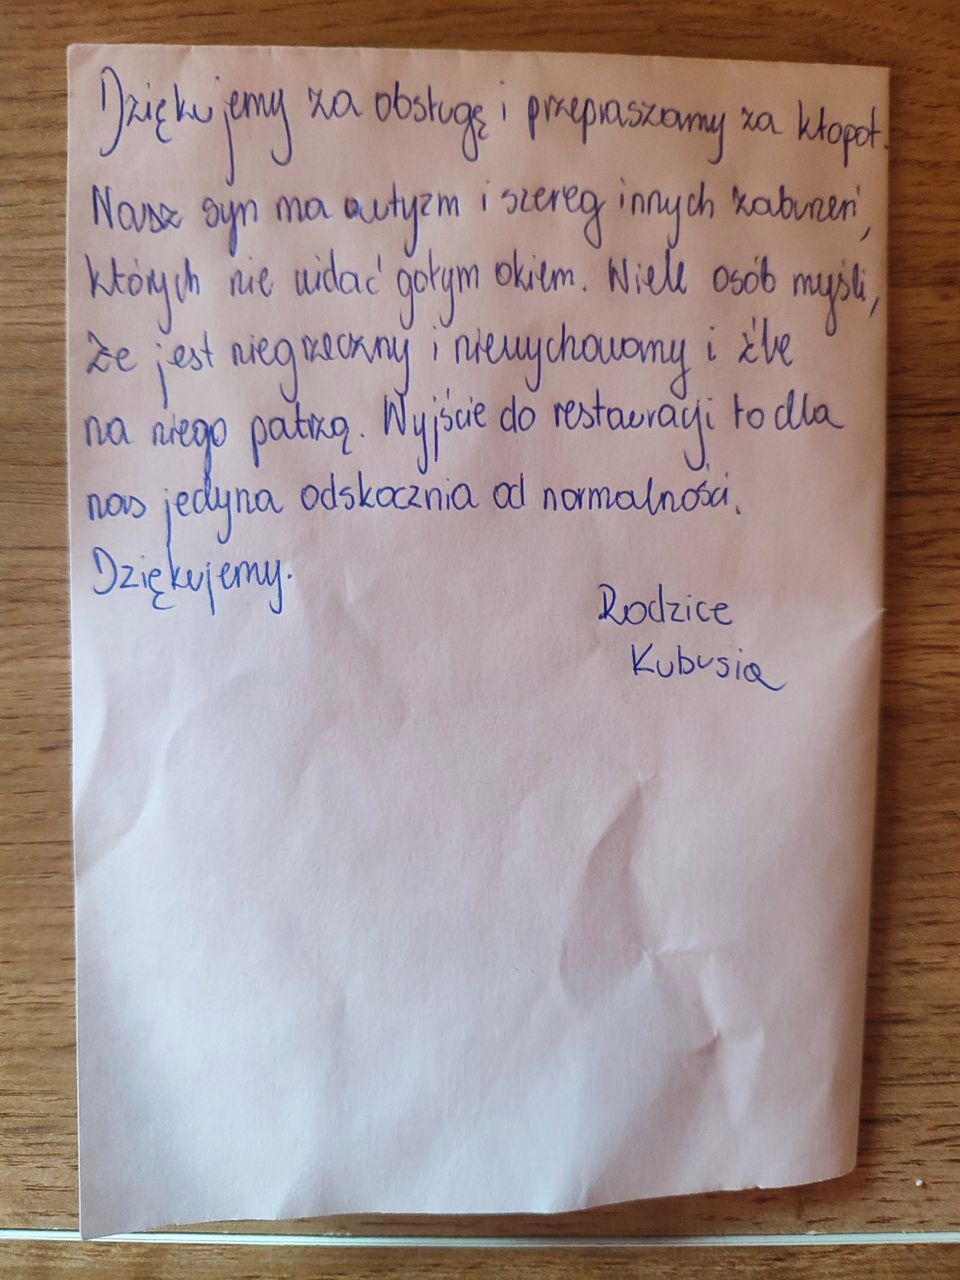 Dziękujemy za obsługę i przepraszamy za kłopot.
Nasz syn ma autyzm i szereg innych zaburzeń,
których nie widać gołym okiem. Wiele osób myśli,
że jest niegrzeczny i niewychowany i źle
na niego patrzą. Wyjście do restauracji to dla
nas jedyna odskocznia od normalności.
Dziękujemy.
Rodzice
Kubusia